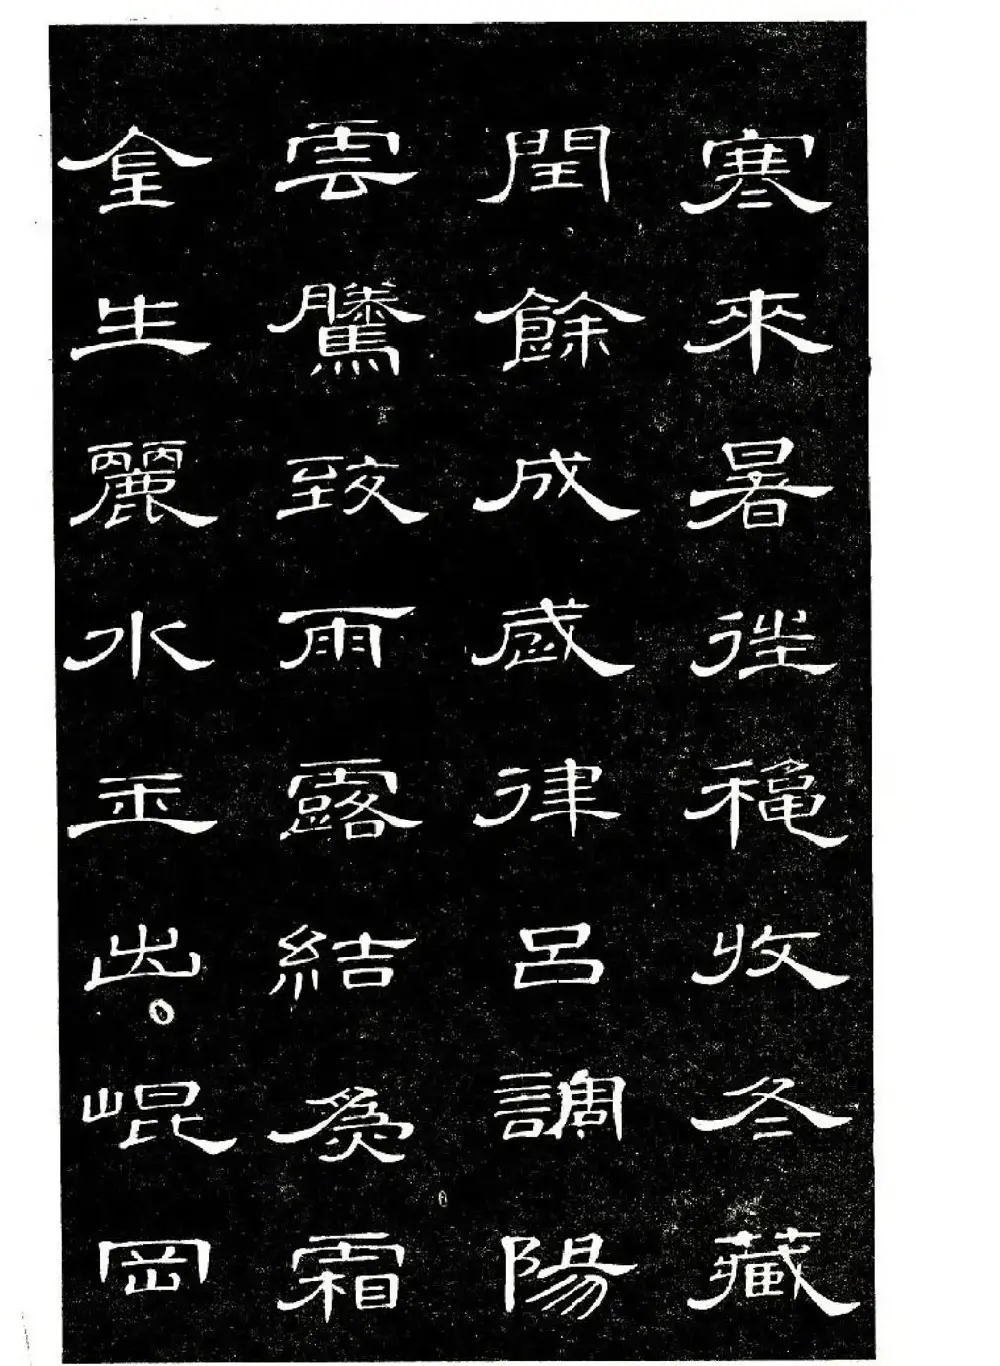 寒來暑往穐收冬藏
閏餘成歲律呂調陽
雲騰致雨露結爲霜
金生麗水玉出崐岡